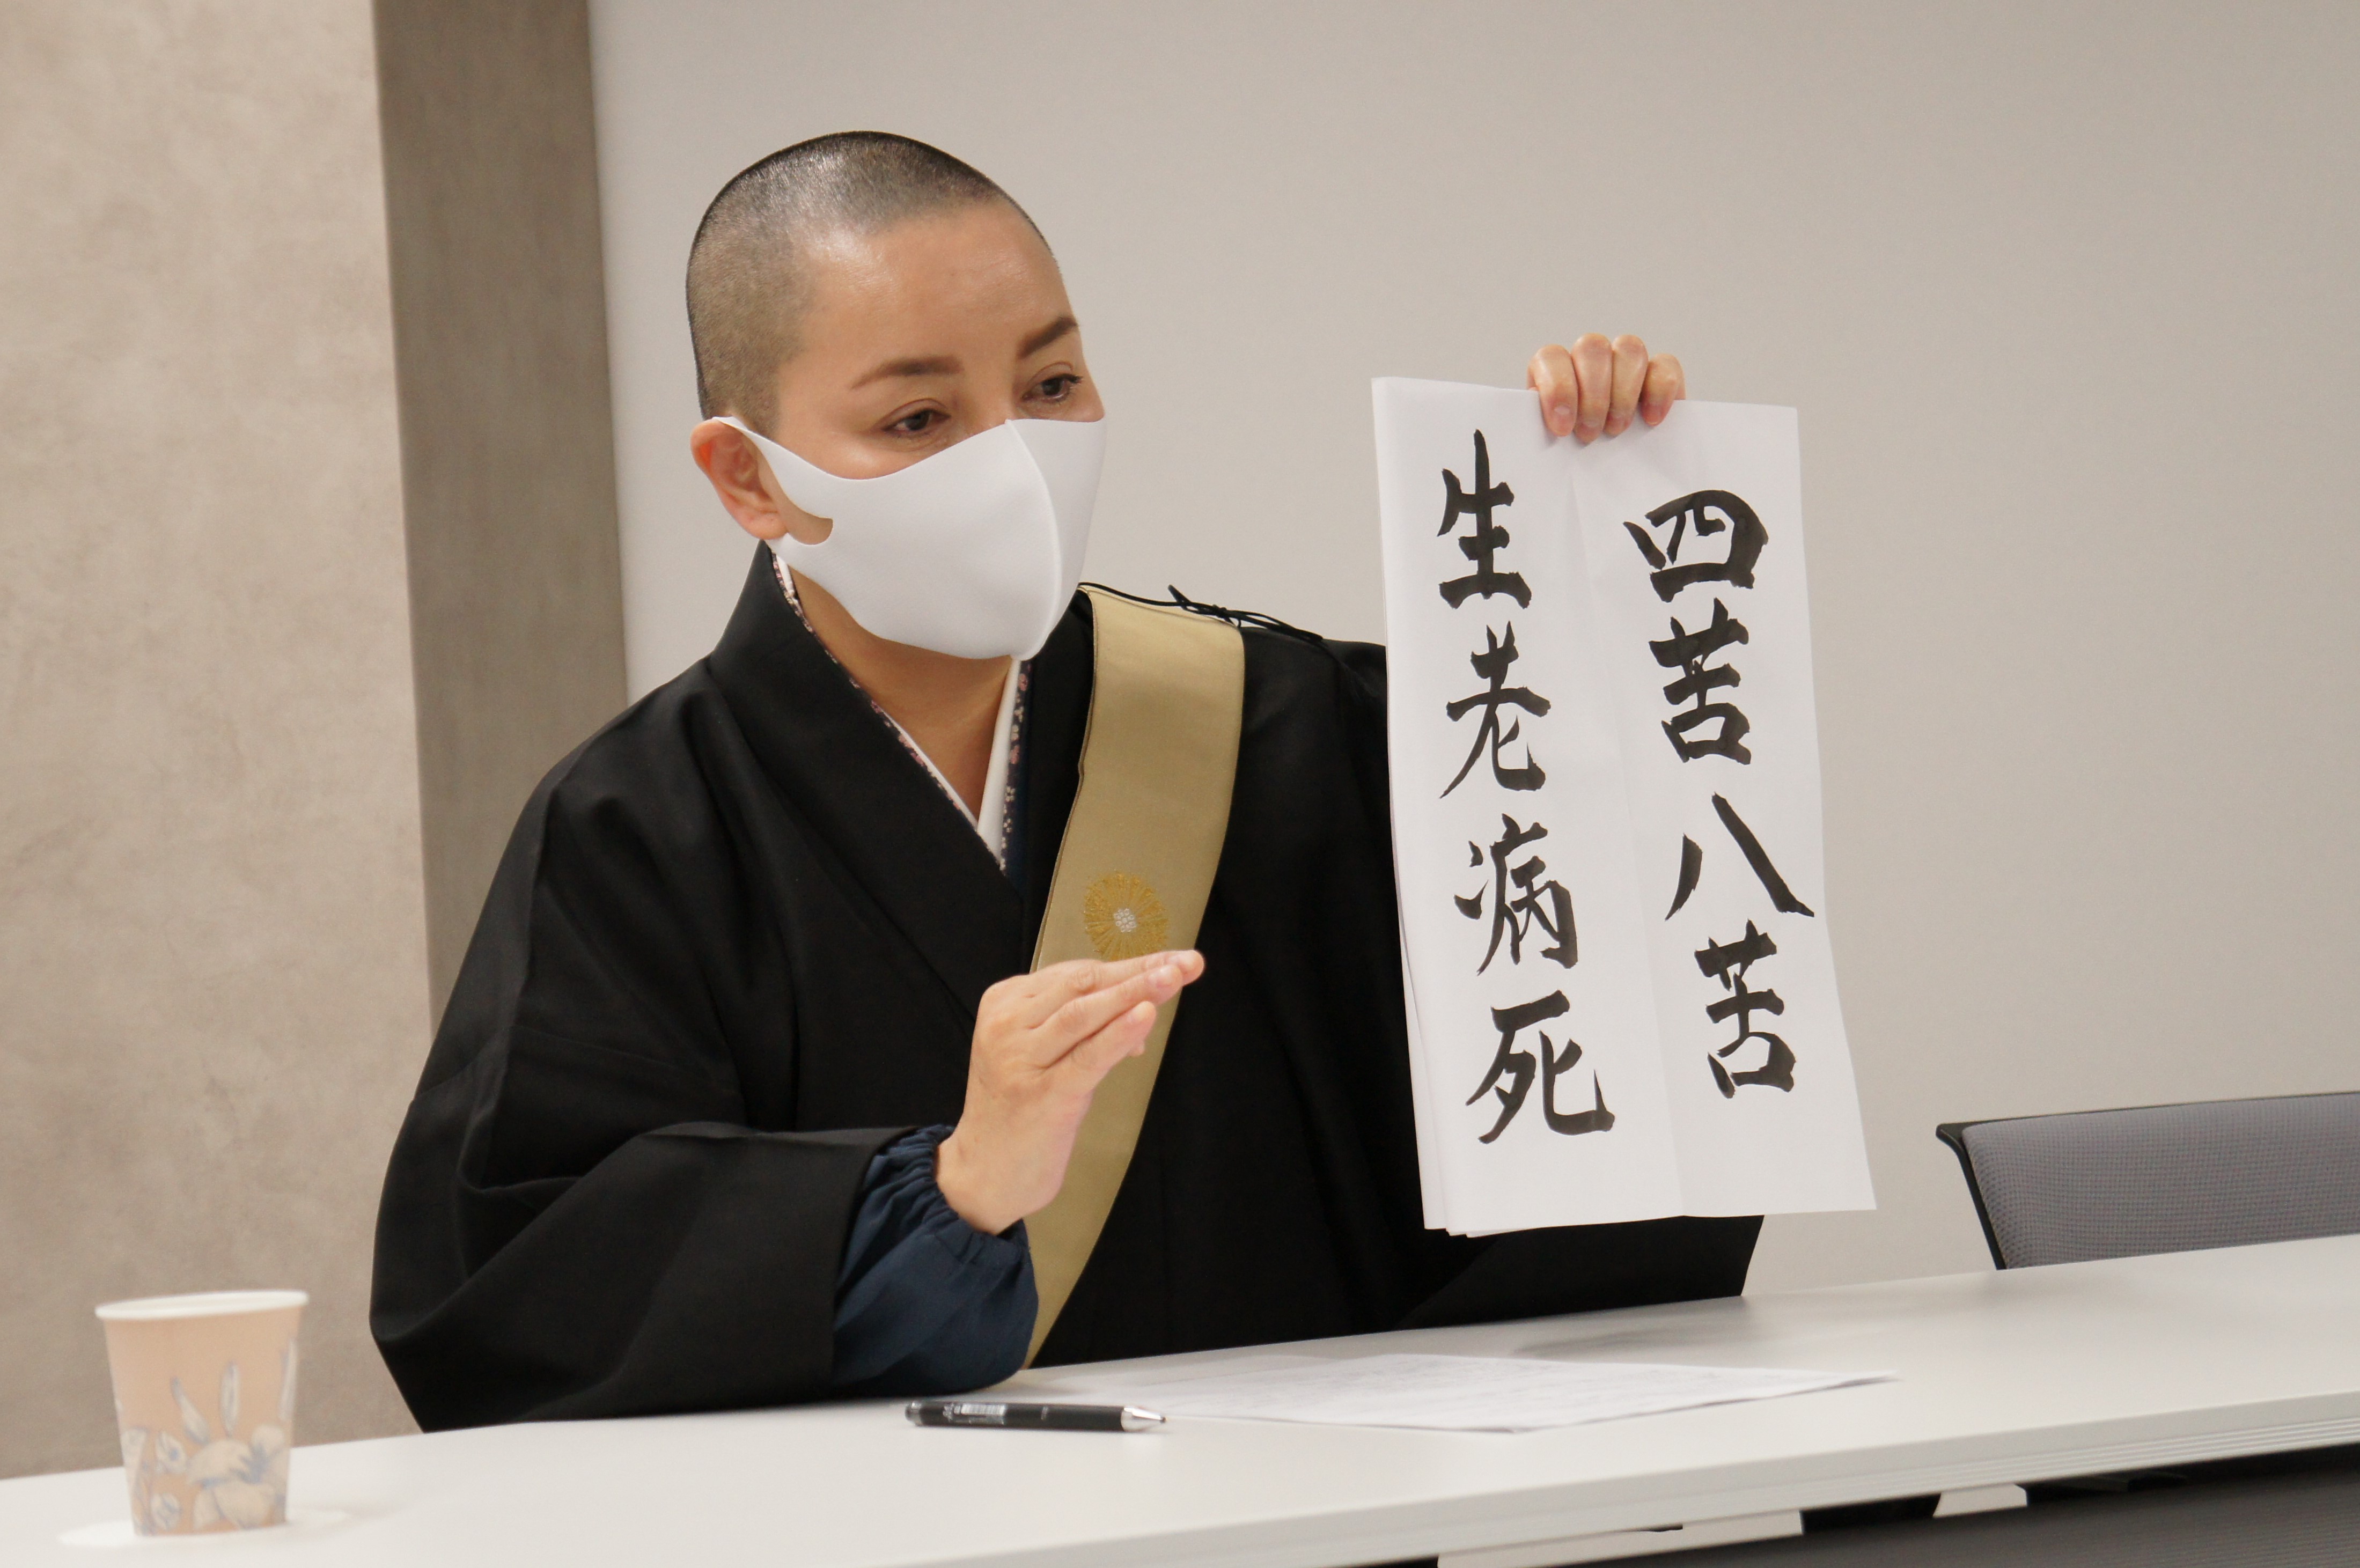 四苦八苦
生老病死